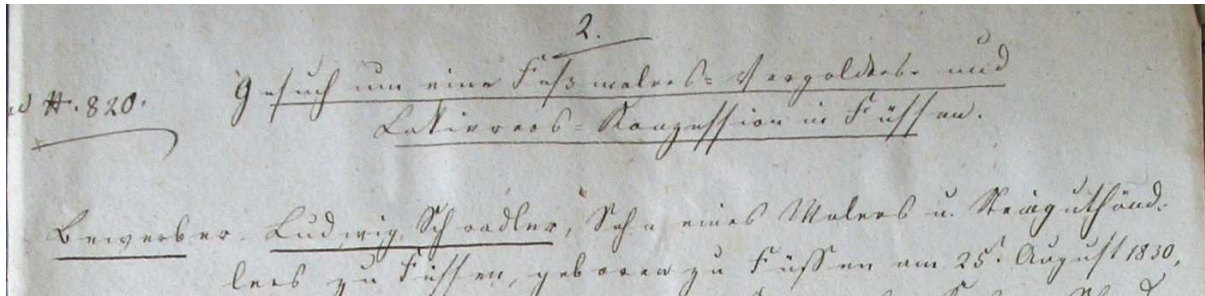 2.
ad N. 820.
Gesuch um eine Faßmalers- Vergolders- und
Lakierers-Konzession in Füssen.
Bewerber. Ludwig Schradler, Sohn eines Malers u. Steinguthänd-
lers zu Füssen, geboren zu Füssen am 25. August 1830,